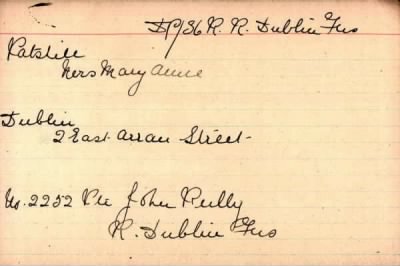 DP/36 R. R. Dublin Fus
Patshill
Mrs Mary Anne
Dublin
2 East Arran Street
No. 2252 Pte John Reilly
R. Dublin Fus